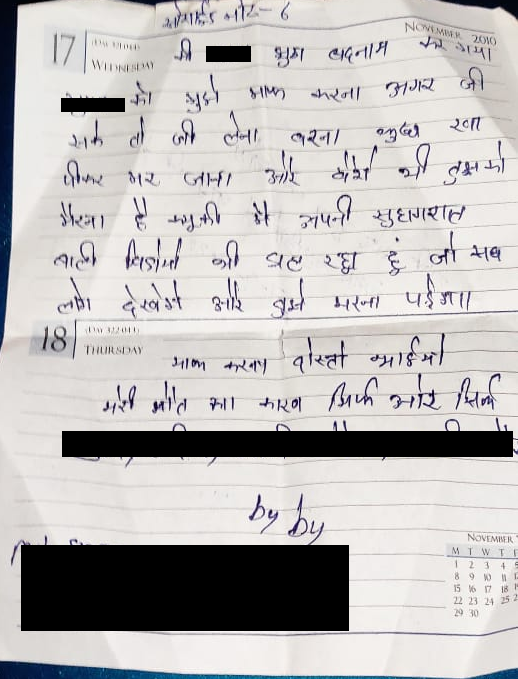 नोट - 6
NOVEMBER 2010
17
WEDNESDAY
की बदनाम कर गया
को मुझे माफ करना अगर जी
सके तो जी लेना वरना कुछ खा
पीकर मर जाना और वैसे भी तुझको
मरना है क्युकी मै अपनी सुहागरात
वाली विडीयो भी रहा हुं जो सब
लोग देखेगे और तुझे मरना पड़ेगा।
18
THURSDAY
माफ करना दोस्तो भाईयो
मेरी मौत का कारण सिर्फ और सिर्फ
by by
NOVEMBER
M T W T F
1 2 3 4 5
8 9 10 11
15 16 17 18
22 23 24 25
29 30